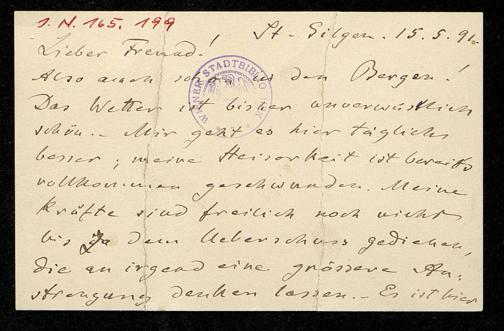 I.N. 165.199
St. Gilgen. 15.5.91.
Lieber Freund!
WIENER STADTBIBLIO
Also auch schon in den Bergen!
Das Wetter ist bisher unverwüstlich
schön. – Mir geht es hier täglich
besser; meine Heiserkeit ist bereits
vollkommen geschwunden. Meine
Kräfte sind freilich noch nicht
bis zu dem Ueberschuss gediehen,
die an irgend eine grössere An-
strengung denken lassen. – Es ist hier